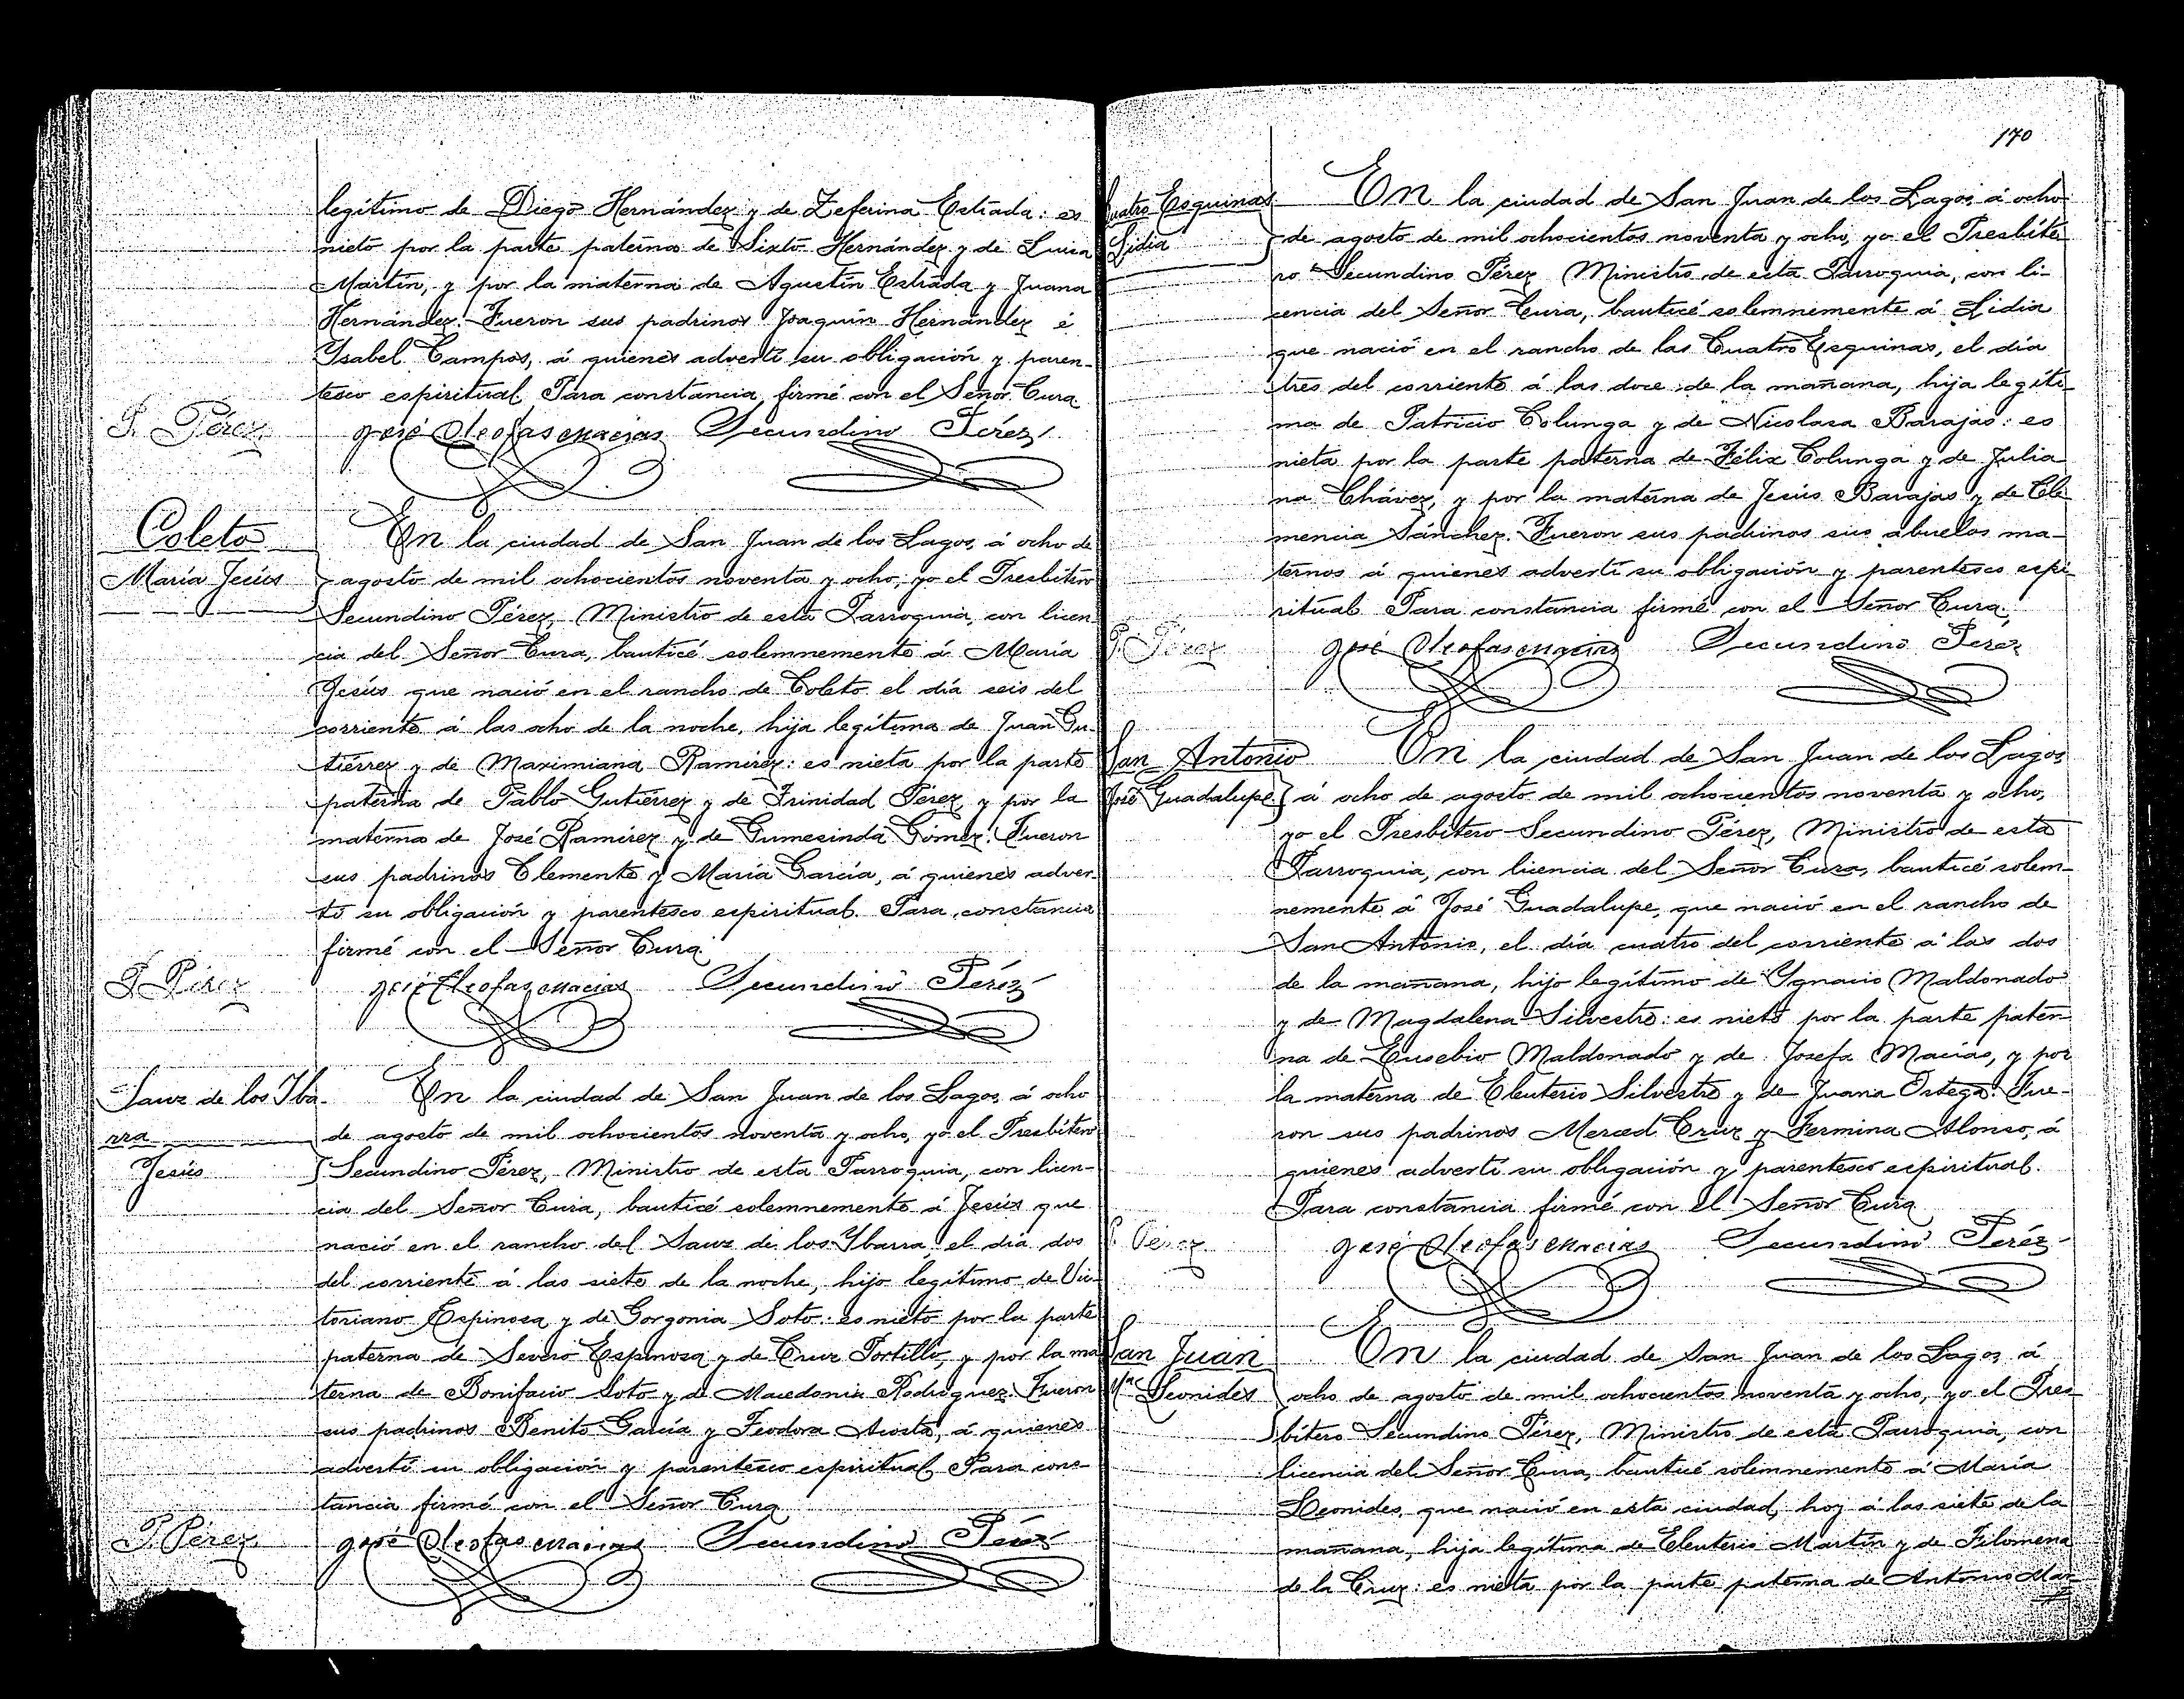 legítimo de Diego Hernández y de Zeferina Estrada: es
nieto por la parte paterna de Sixto Hernández y de Luisa
Martín, y por la materna de Agustín Estrada y Juana
Hernández. Fueron sus padrinos Joaquín Hernández é
Ysabel Campos, á quienes advertí su obligación y paren-
tesco espiritual. Para constancia firmé con el Señor Cura
P. Pérez
José Cleofas Macias Secundino Pérez
Coleto
María Jesús
En la ciudad de San Juan de los Lagos, á ocho de
agosto de mil ochocientos noventa y ocho, yo el Presbítero
Secundino Pérez, Ministro de esta Parroquia, con licen
cia del Señor Cura, bauticé solemnemente á María
Jesús que nació en el rancho de Coleto el día seis del
corriente á las ocho de la noche, hija legítima de Juan Gu-
tiérrez y de Maximiana Ramírez: es nieta por la parte
paterna de Pablo Gutiérrez y de Trinidad Pérez, y por la
materna de José Ramírez y de Gumesinda Gómez. Fueron
sus padrinos Clemente y María García, á quienes adver-
tí su obligación y parentesco espiritual. Para constancia
firmé con el Señor Cura
P. Pérez
José Cleofas Macias Secundino Pérez
Sauz de los Yba-
rra
Jesús
En la ciudad de San Juan de los Lagos, á ocho
de agosto de mil ochocientos noventa y ocho, yo el Presbítero
Secundino Pérez, Ministro de esta Parroquia, con licen-
cia del Señor Cura, bauticé solemnemente á Jesús que
nació en el rancho del Sauz de los Ybarra el día dos
del corriente á las siete de la noche, hijo legítimo de Vic
toriano Espinosa y de Gorgonia Soto: es nieto por la parte
paterna de Severo Espinosa y de Cruz Portillo, y por la ma
terna de Bonifacio Soto y de Macedonia Rodríguez. Fueron
sus padrinos Benito García y Teodora Acosta, á quienes
advertí su obligación y parentesco espiritual. Para cons-
tancia firmé con el Señor Cura
P. Pérez
José Cleofas Macias Secundino Pérez
170
Cuatro Esquinas
Lidia
En la ciudad de San Juan de los Lagos, á ocho
de agosto de mil ochocientos noventa y ocho, yo el Presbíte
ro Secundino Pérez, Ministro de esta Parroquia, con li-
cencia del Señor Cura, bauticé solemnemente á Lidia
que nació en el rancho de las Cuatro Esquinas, el día
tres del corriente á las doce de la mañana, hija legíti-
ma de Patricio Colunga y de Nicolasa Barajas: es
nieta por la parte paterna de Félix Colunga y de Julia
na Chávez, y por la materna de Jesús Barajas y de Cle
mencia Sánchez. Fueron sus padrinos sus abuelos ma-
ternos á quienes advertí su obligación y parentesco espi-
ritual. Para constancia firmé con el Señor Cura.
P. Pérez
José Cleofas Macias Secundino Pérez
San Antonio
José Guadalupe
En la ciudad de San Juan de los Lagos,
á ocho de agosto de mil ochocientos noventa y ocho,
yo el Presbítero Secundino Pérez, Ministro de esta
Parroquia, con licencia del Señor Cura, bauticé solem-
nemente á José Guadalupe, que nació en el rancho de
San Antonio, el día cuatro del corriente á las dos
de la mañana, hijo legítimo de Ygnacio Maldonado
y de Magdalena Silvestre: es nieto por la parte pater-
na de Eusebio Maldonado y de Josefa Macías, y por
la materna de Eleuterio Silvestre y de Juana Ortega. Fue-
ron sus padrinos Merced Cruz y Fermina Alonso, á
quienes advertí su obligación y parentesco espiritual.
Para constancia firmé con el Señor Cura
P. Pérez
José Cleofas Macias Secundino Pérez
San Juan
Mª Leonides
En la ciudad de San Juan de los Lagos, á
ocho de agosto de mil ochocientos noventa y ocho, yo el Pres
bítero Secundino Pérez, Ministro de esta Parroquia, con
licencia del Señor Cura, bauticé solemnemente á María
Leonides, que nació en esta ciudad, hoy á las siete de la
mañana, hija legítima de Eleuterio Martín y de Filomena
de la Cruz: es nieta por la parte paterna de Antonio Mar-